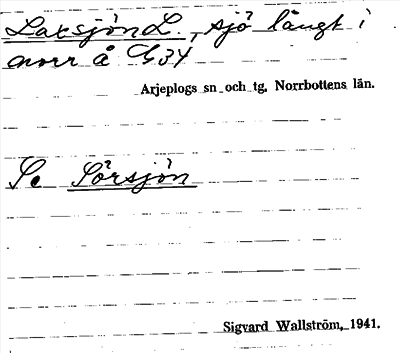 Laxsjön L., sjö längt i
norr å G34
Arjeplogs sn och tg, Norrbottens län.
Se Sörsjön
Sigvard Wallström, 1941.